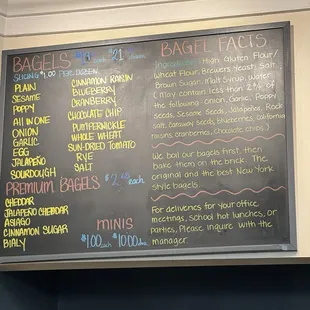 BAGELS each $21
SLICING $1.00 PER DOZEN
PLAIN
SESAME
POPPY
ALL IN ONE
ONION
GARLIC
EGG
JALAPEÑO
SOURDOUGH
CINNAMON RAISIN
BLUEBERRY
CRANBERRY
CHOCOLATE CHIP
PUMPERNICKLE
WHOLE WHEAT
SUN-DRIED TOMATO
RYE
SALT
PREMIUM BAGELS each
CHEDDAR
JALAPEÑO CHEDDAR
ASIAGO
CINNAMON SUGAR
BIALY
MINIS
$1.00 each $10.00 doz
BAGEL FACTS
Ingredients: High Gluten Flour/
Wheat Flour, Brewers Yeast, Salt,
Brown Sugar, Malt Syrup, Water
(May contain less than 2% of
the following: Onion, Garlic, Poppy
seeds, Sesame Seeds, Jalapeño, Rock
Salt, Caraway seeds, blueberries, California
raisins, cranberries, Chocolate chips)
We boil our bagels first then
bake them on the brick. The
original and the best New York
style bagels.
For deliveries for your office
meetings, school hot lunches, or
parties, Please inquire with the
manager.